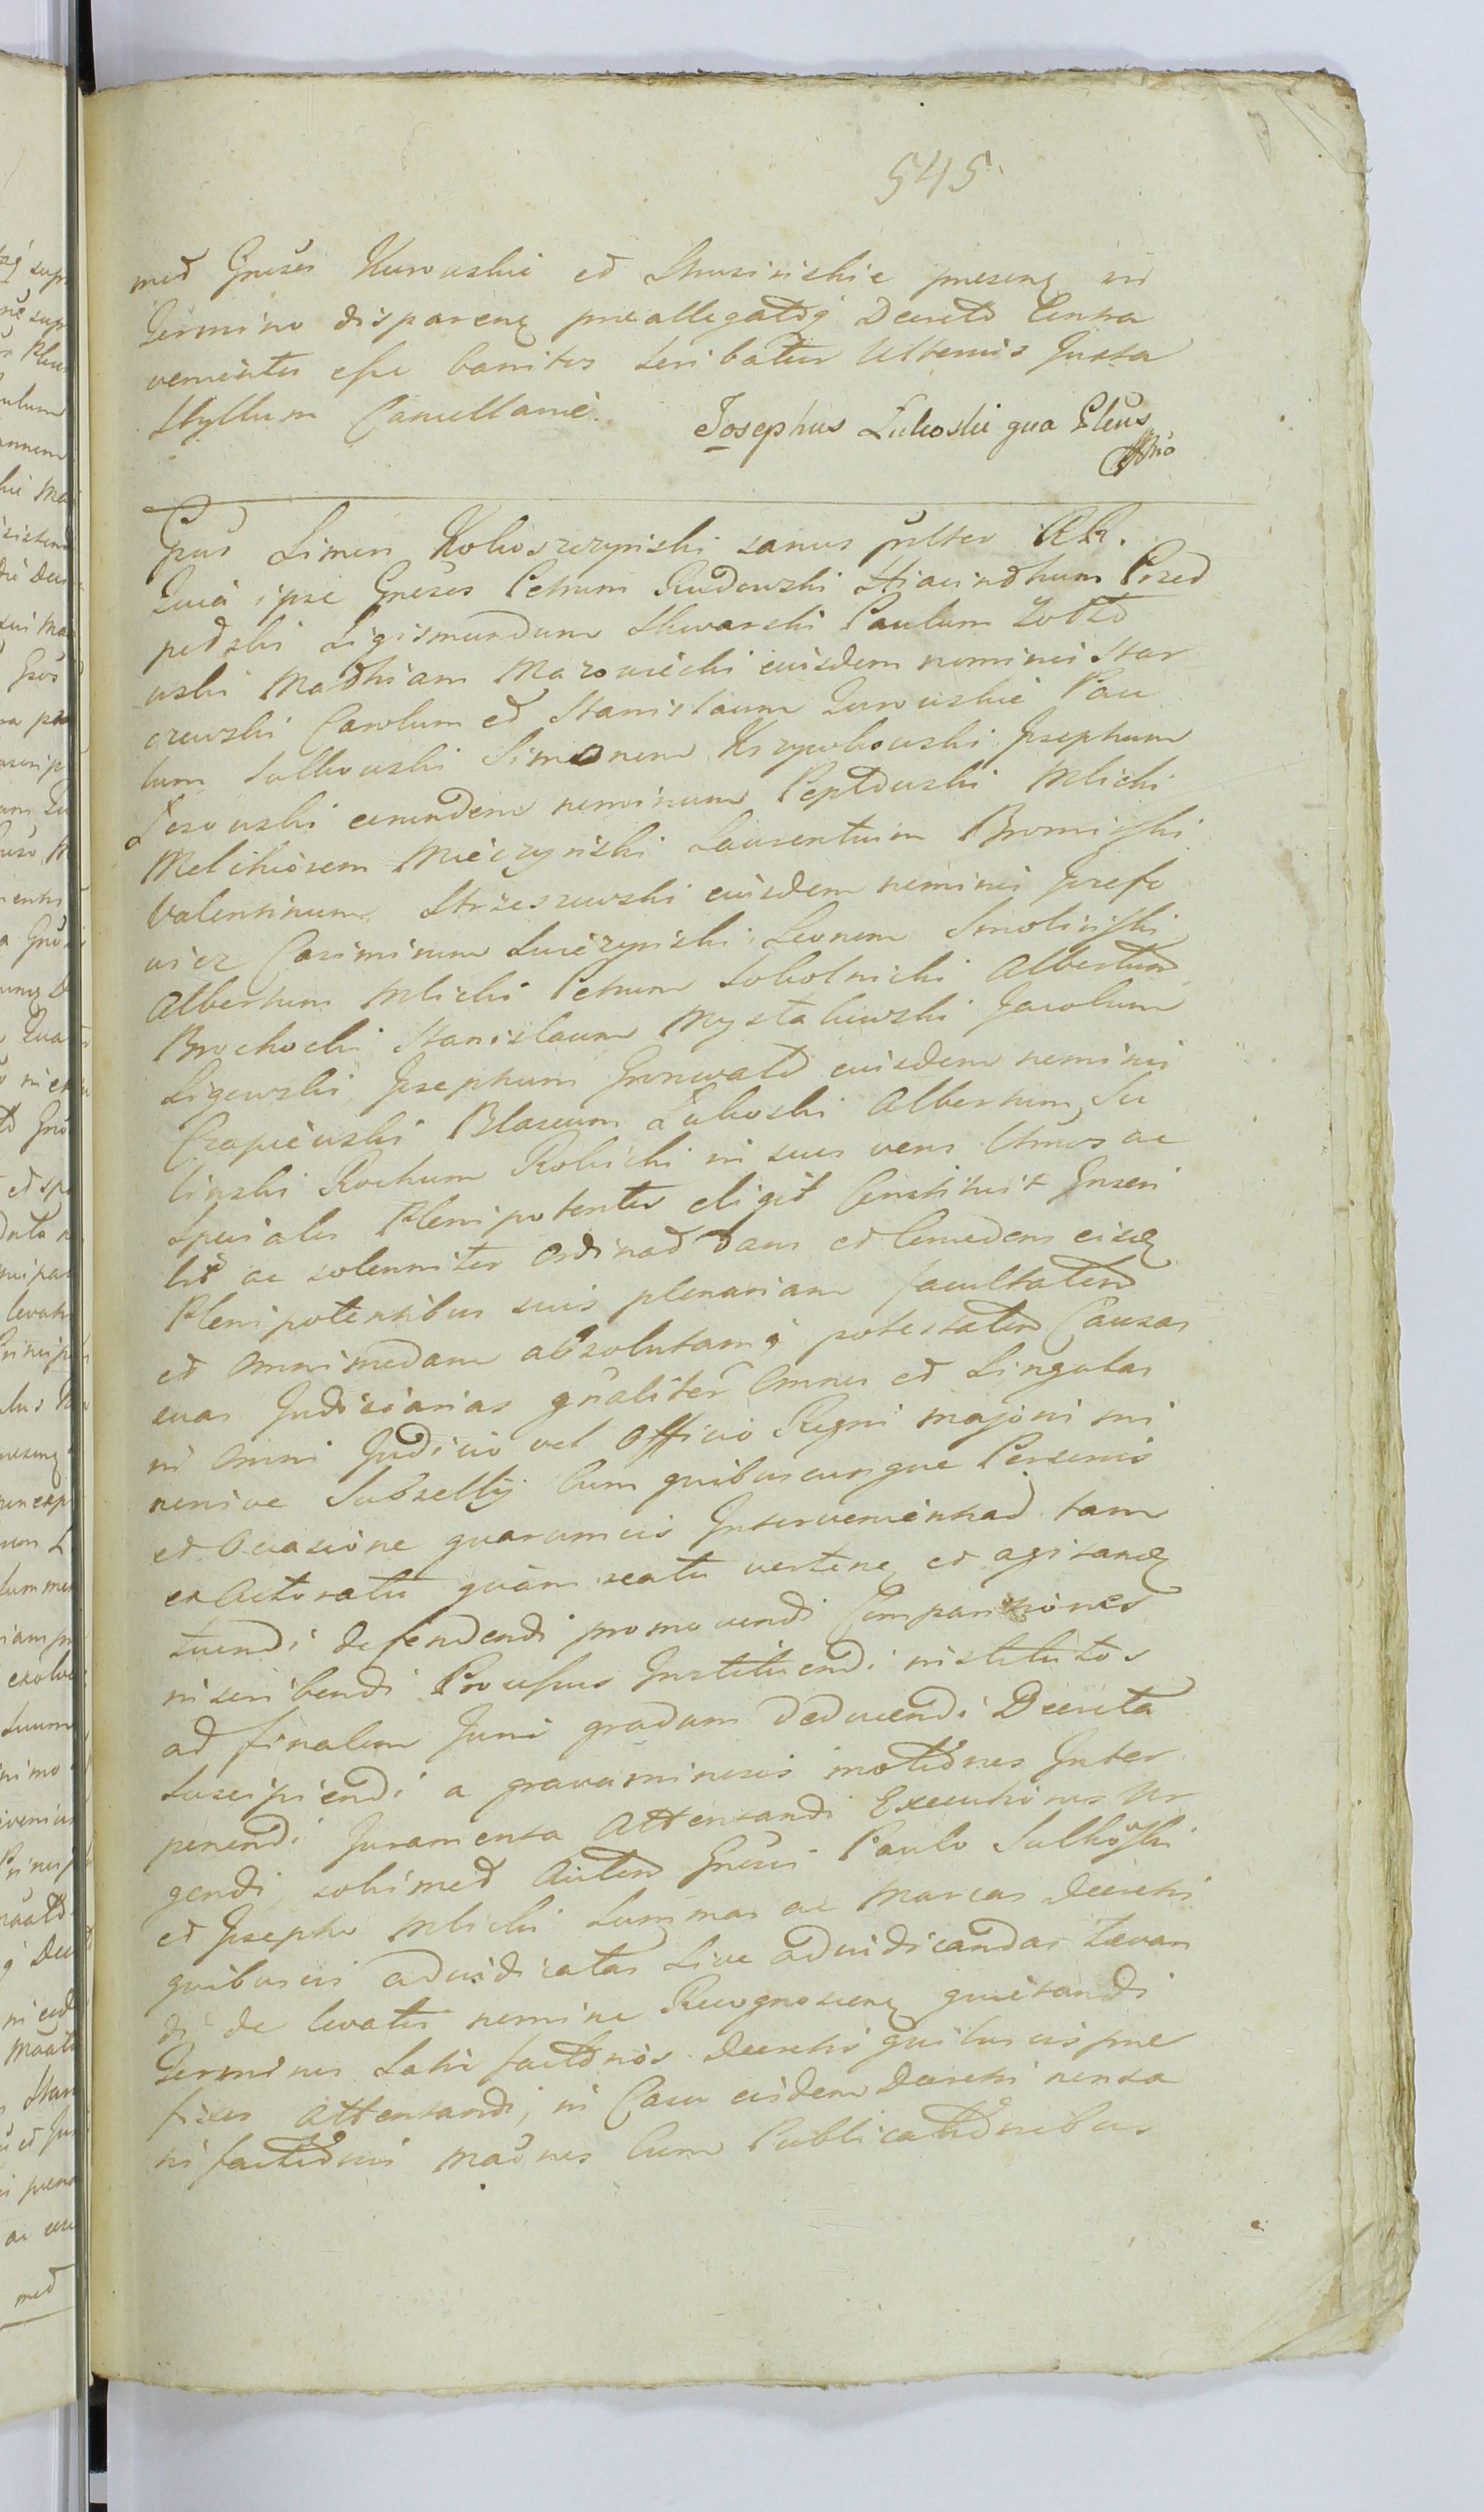 545
med Gnesos Kurowskie et Skusinskie presenq in
Termino disparenq preallegatoq Decreto Contra
venientes esse banitos Scribatur Ulterius Juxta
Styllum Cancellariè.
Josephus Łukoski qua Plenus
mpio
Gnus Simon Kokoszczynski sanus pulter RR.
Quia ipse Gnesos Petrum Rudowski Hiacinthum Przed
pełski Sigismundum Skwarski Paulum Zołto
wski Mathiam Mazowiecki eiusdem nominis Star
czewski Carolum et Stanislaum Zurowskie Pau
lum Sulkowski Simonem Krzywkowski Josephum
Jezowski eorundem nominum Peptowski Mlicki
Melchiorem Mieczynski Laurentium Bromiski
Valentinum Strzeszewski eiusdem nominis Jozefo
wicz Casimirum Swiezynski Leonem Smolinski
Albertum Mlicki Petrum Sokolnicki Albertum
Brochocki Stanislaum Mystakowski Jacobum
Ligowski, Josephum Gronwald eiusdem nominis
Czapiewski Blasium Łukoski Albertum Su
linski Rochum Rokicki in suos veros Umos ac
Speciales Plenipotentes eligit Constituit Inseri
bit ac solenniter Ordinat Dans et Concedens eisq
Plenipotentibus suis plenariam facultatem
et Omnimodam absolutamq potestatem Causas
suas Judiciarias gnaliter Omnes et Singulas
in Omni Judicio vel Officio Regni majoris mi
norisve Subsellij Cum quibuscunque Personis
et Occasione quarumvis Intervenientiad tam
ex Actoratu quàm reatu vertenq et agitanq
tuendi defendendi promovendi Comparitiones
inscribendi Processus Instituendi institutos
ad finalem Juris gradum deducendi Decreta
suscipiendi a gravaminosis motiones Inter
ponendi Juramenta Attentandi Executiones Ur
gendi solimet Autem Gnesis Paulo Sulkowski
et Josepho Mlicki Summas ac Marcas Decretis
quibusvis adiudicatas Sive adiudicandas Levan
di de levatis nomine Recognoscenq quietandi
Terminos Satisfactionis Decretis quibusvis pre
fixos Attentandi, in Casu eisdem Decretis nonsa
tisfactionis Maones Cum Publicationibus